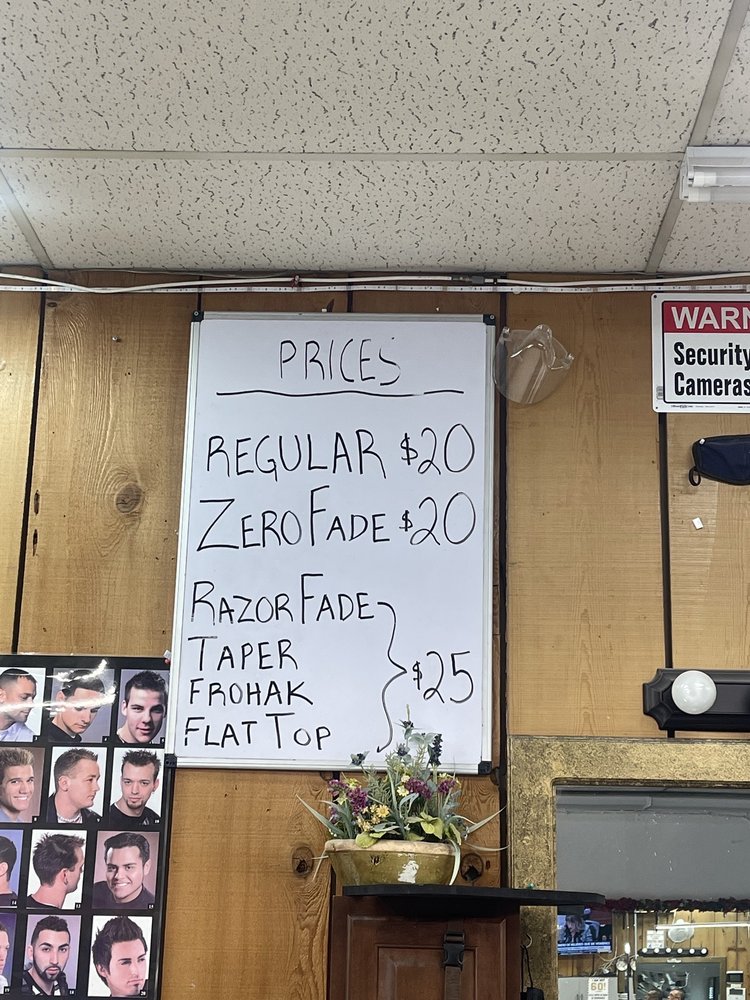 PRICES
REGULAR $20
ZERO FADE $20
RAZOR FADE
TAPER
FROHAK
FLAT TOP
$25
WARN
Security
Cameras
60!